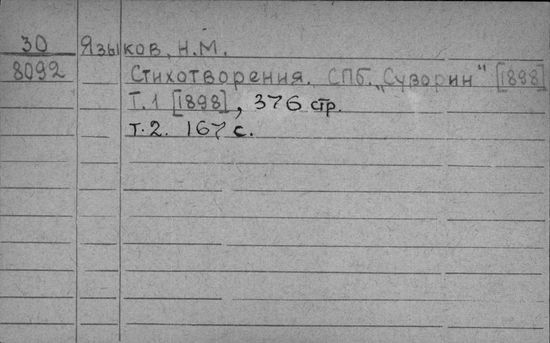 30 Языков, Н.М.
8092 Стихотворения. СПб. „Суворин" [1898]
Т.1 [1898], 376 стр.
т.2. 167 с.